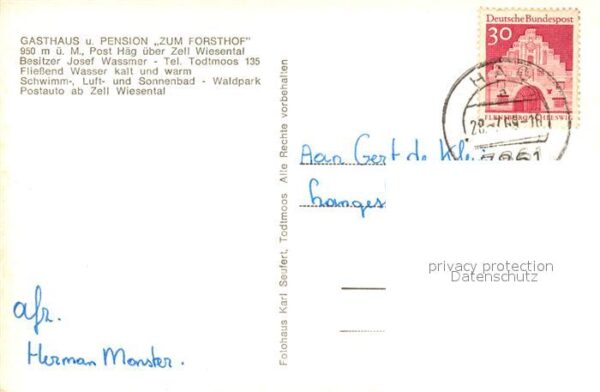 GASTHAUS u. PENSION „ZUM FORSTHOF"
950 m ü. M., Post Häg über Zell Wiesental
Besitzer Josef Wassmer - Tel. Todtmoos 135
Fließend Wasser kalt und warm
Schwimm-, Luft- und Sonnenbad - Waldpark
Postauto ab Zell Wiesental
Fotohaus Karl Seufert, Todtmoos Alle Rechte vorbehalten
Deutsche Bundespost
30
FLENSBURG SCHLESWIG
7861
Aan Gert de
Langes
privacy protection
Datenschutz
afz.
Herman Monster.